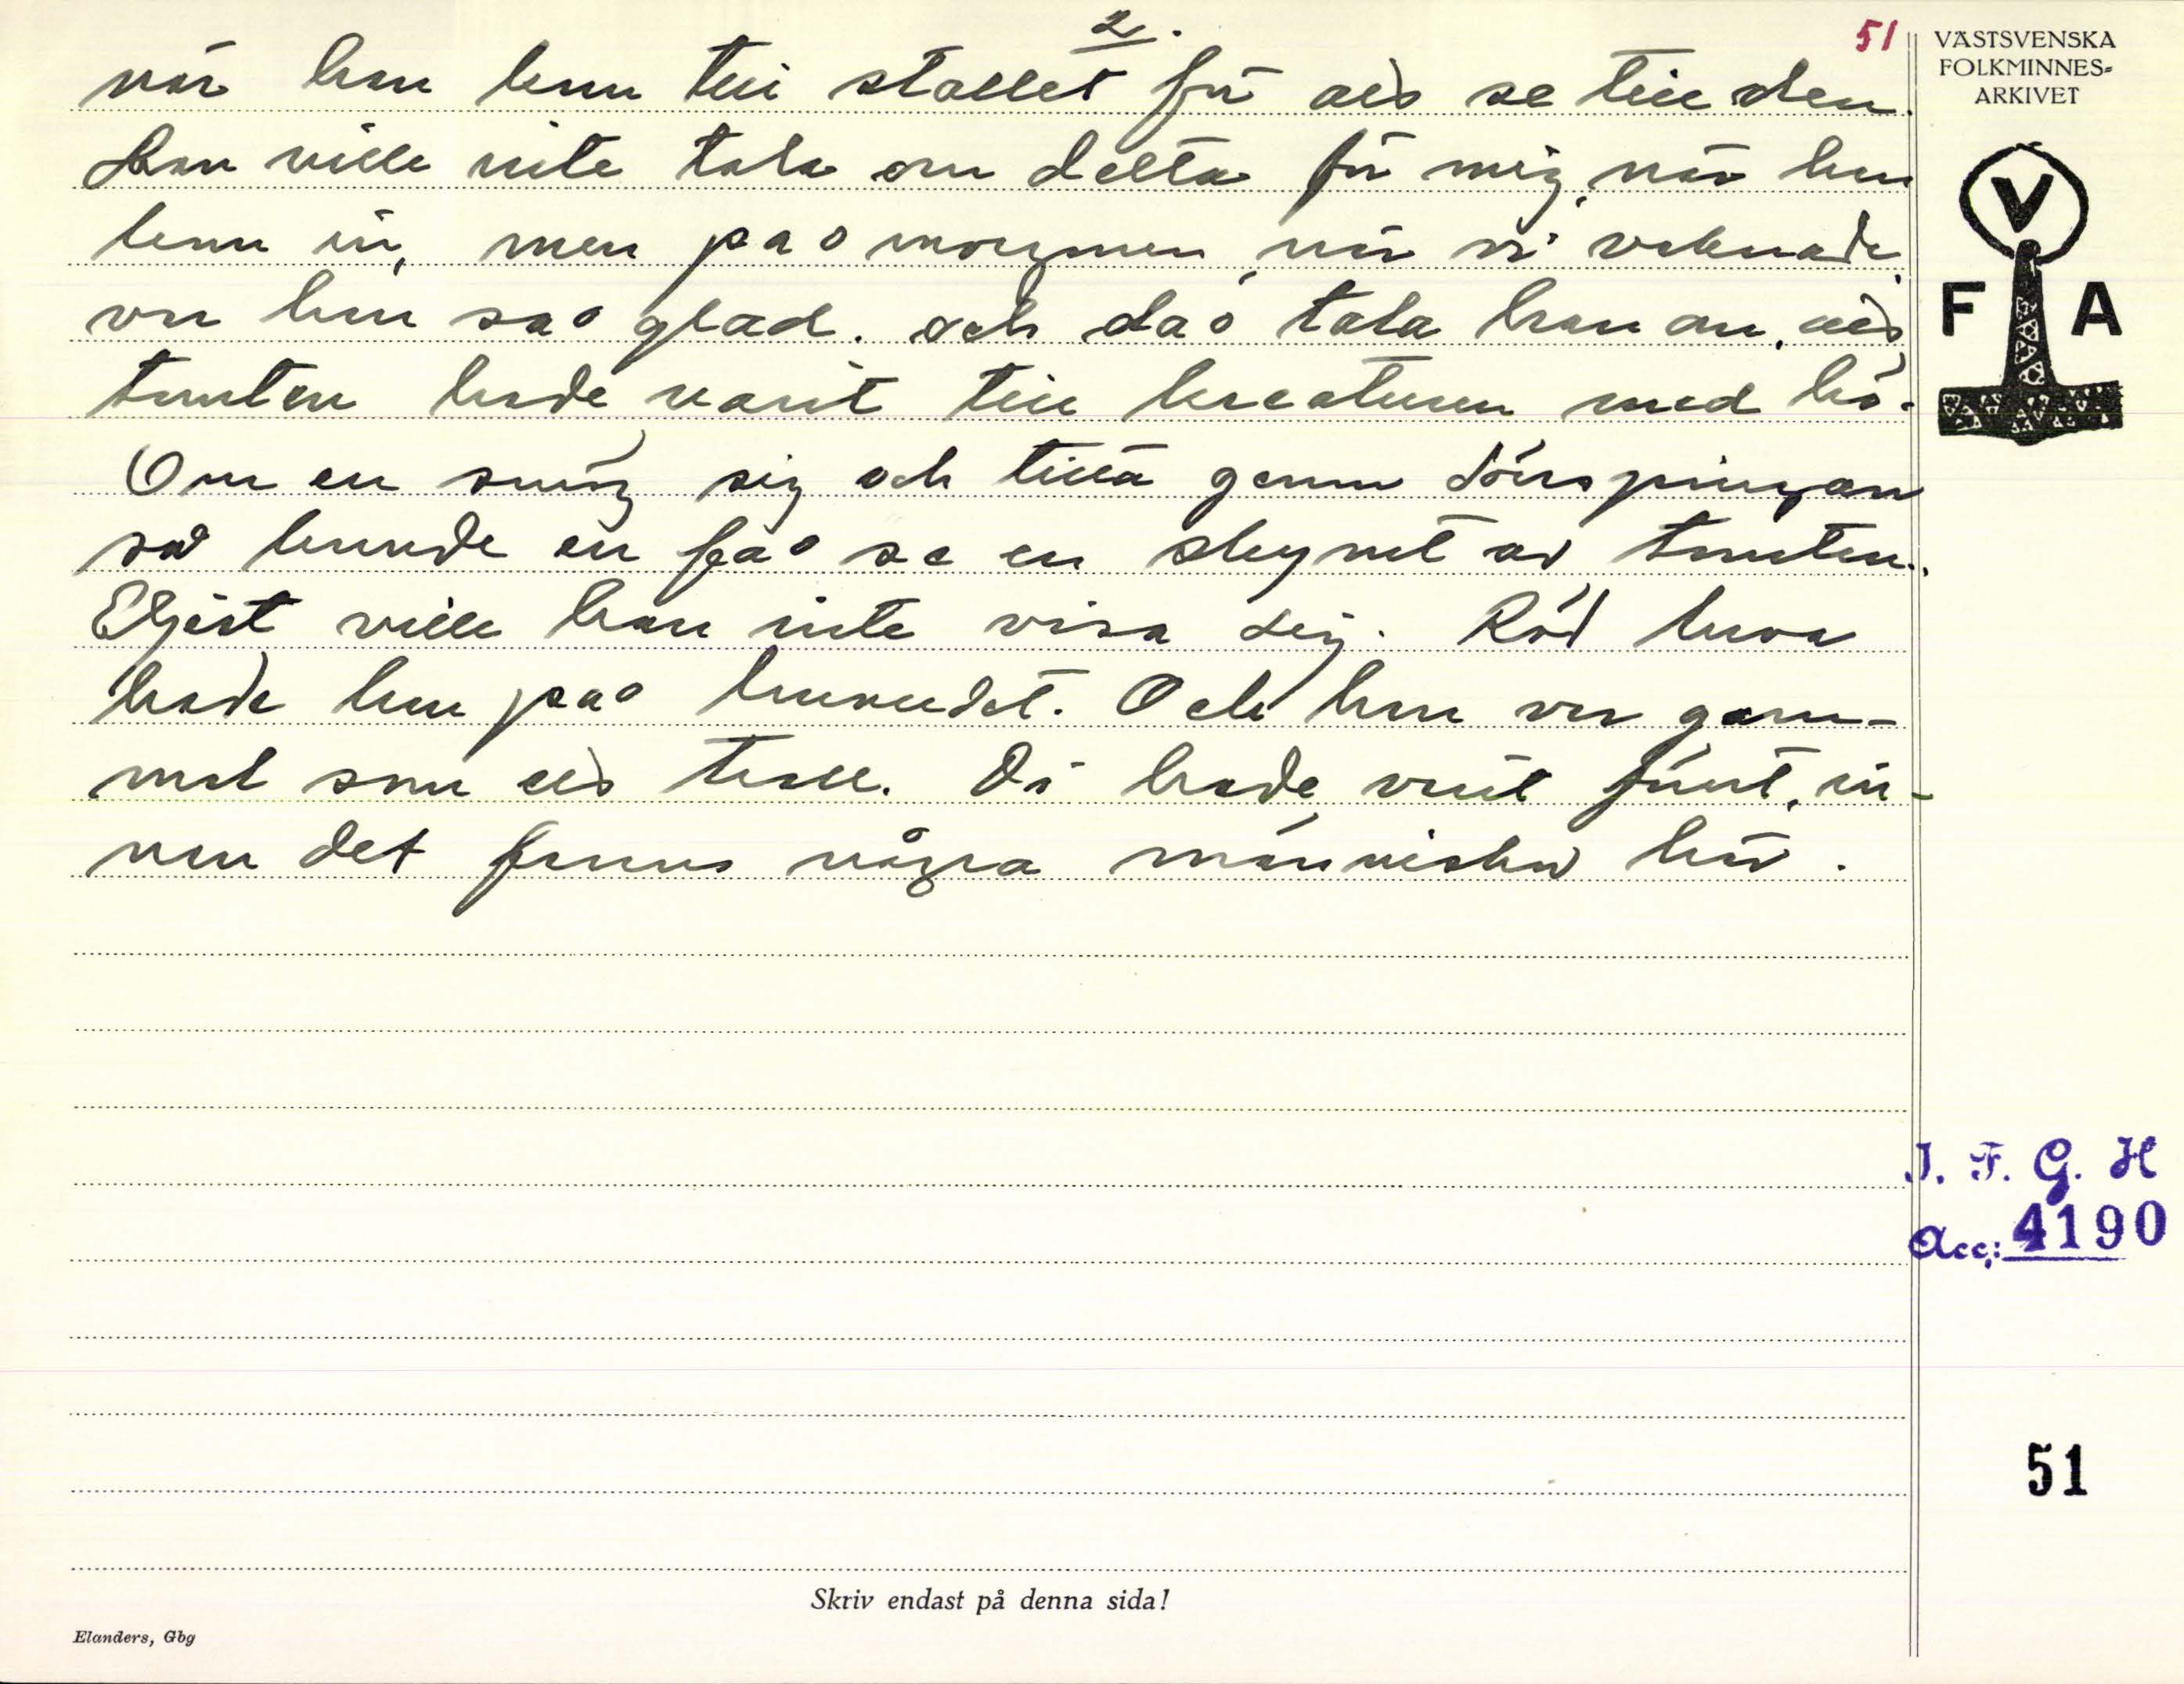 2.
51
när han kom till stallet för att se till den.
Han ville inte tala om detta för mig, när han
kom in, men pao morgonen, när vi vaknade,
var han sao glad. och dao tala han om, att
tomten hade varit till kreaturen med hö.
Om en smög sig och titta genom dörrspringan
så kunde en fao se en skymt av tomten.
Eljest ville han inte visa sig. Röd luva
hade han pao huvudet. Och han var gam-
mal som ett troll. Di hade vart först, in-
nan det fanns några människor här.
VÄSTSVENSKA
FOLKMINNES-
ARKIVET
V
F A
I. F. G. H
Acc: 4190
51
Skriv endast på denna sida!
Elanders, Gbg